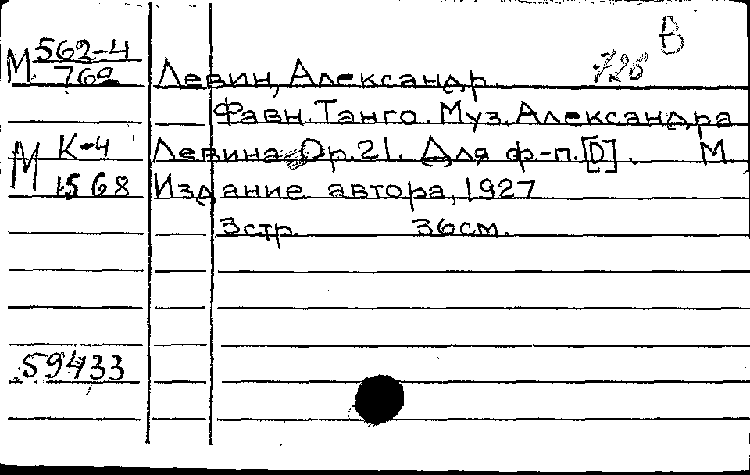 В
М 562-4
769
728
Левин, Александр.
Фавн. Танго. Муз. Александра
М К-4
1568
Левина Op. 21. Для ф-п. [D]. М.
Издание автора, 1927
3 стр. 36 см.
59433